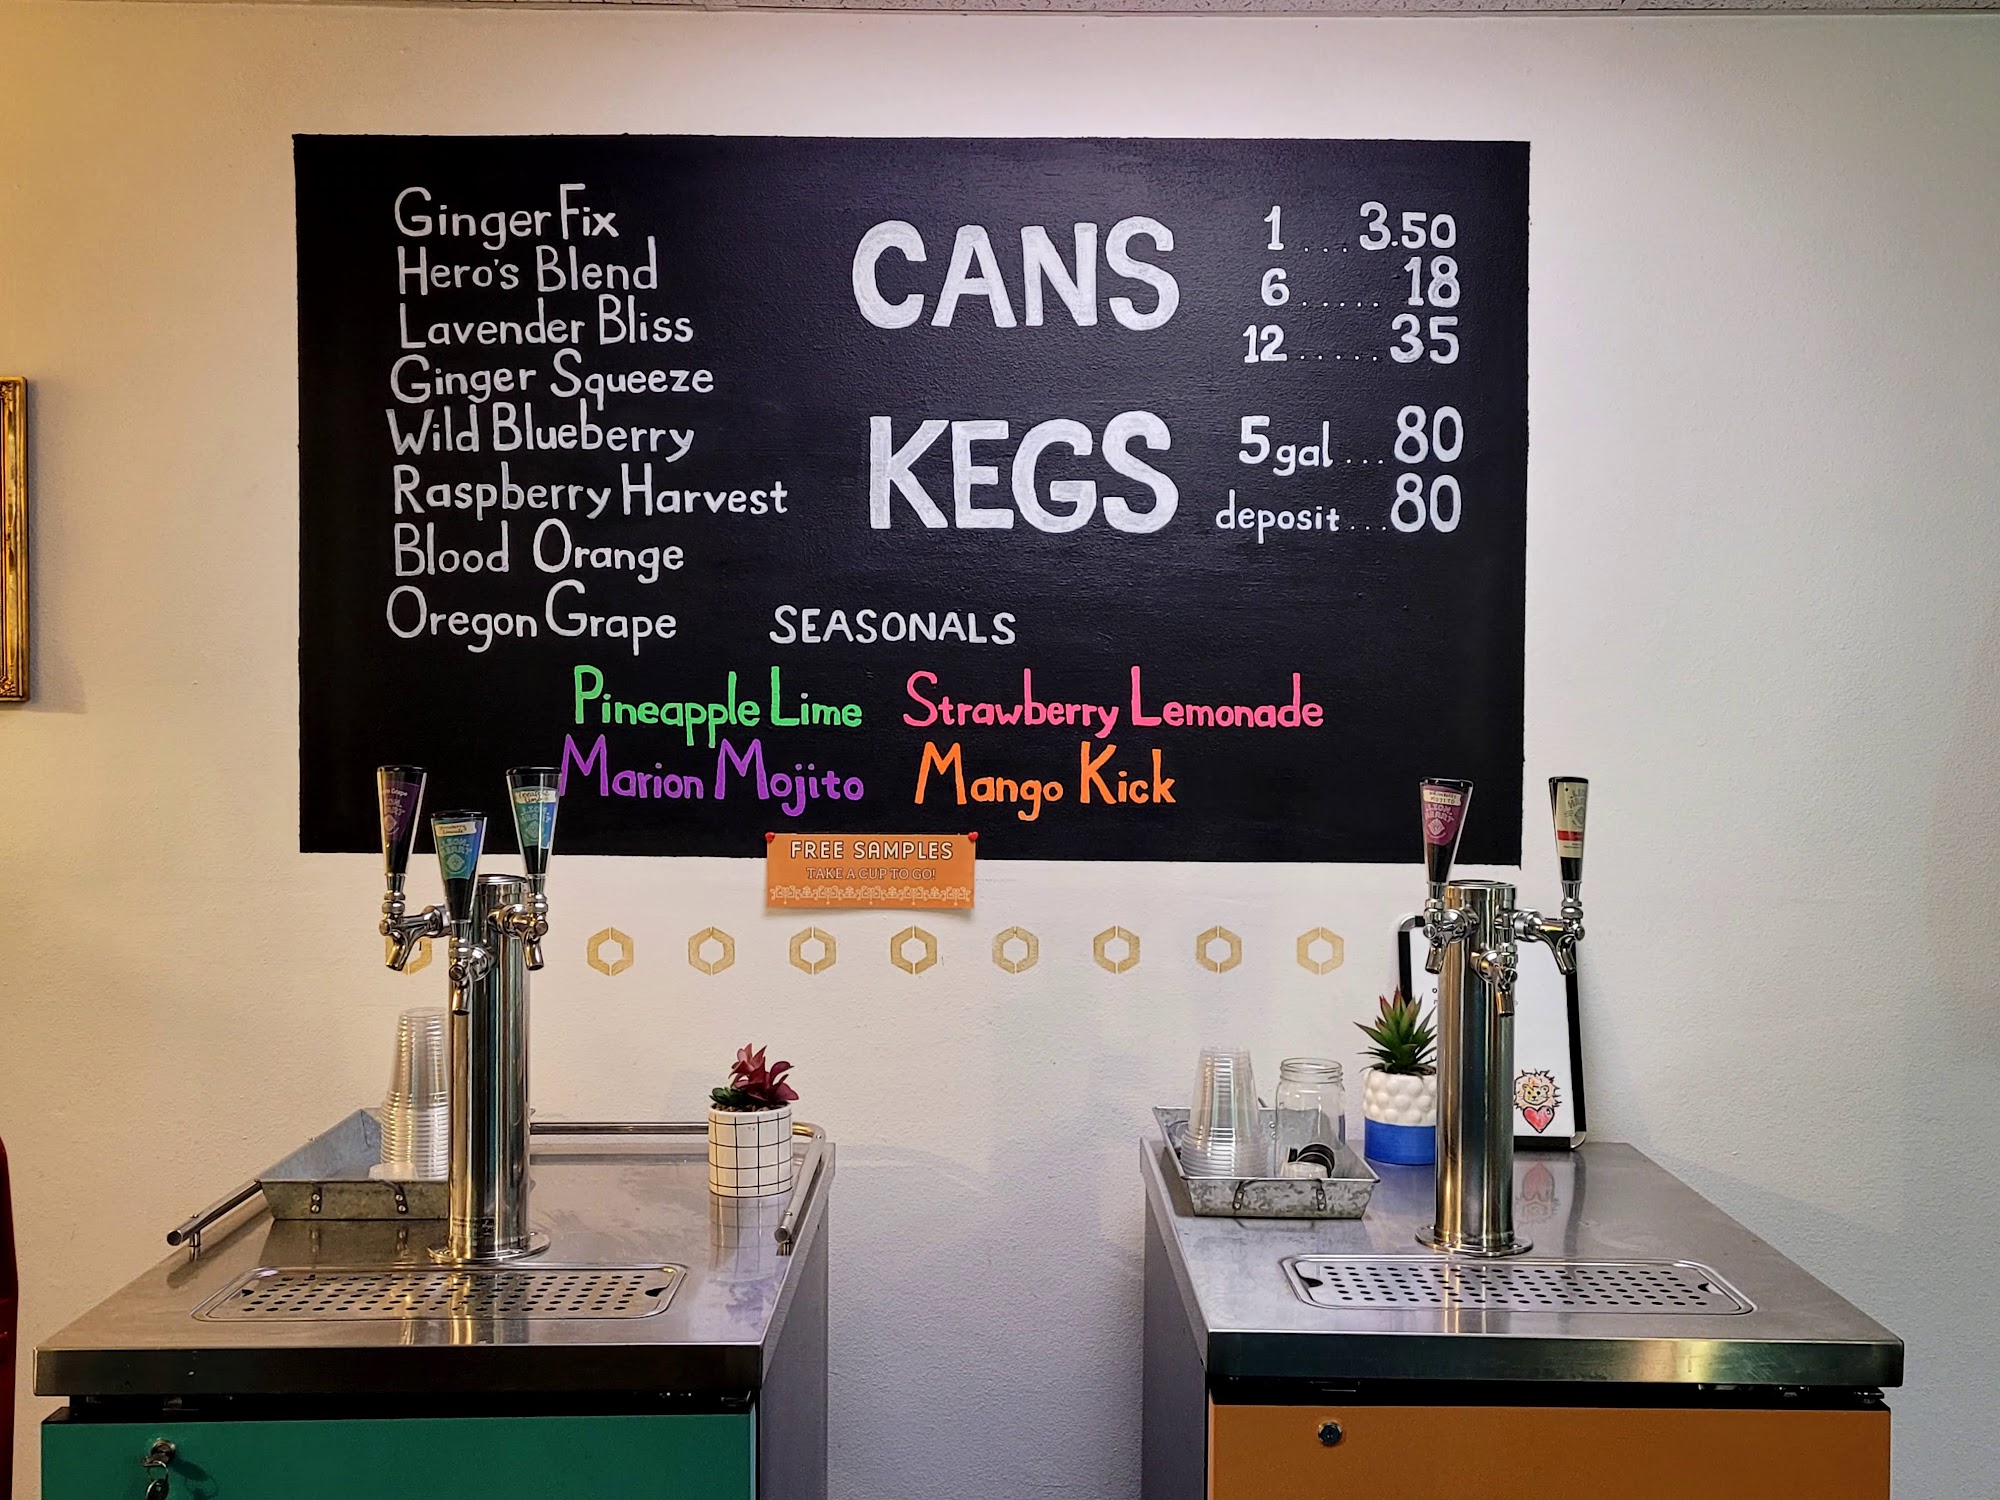 Ginger Fix
Hero's Blend
Lavender Bliss
Ginger Squeeze
Wild Blueberry
Raspberry Harvest
Blood Orange
Oregon Grape
CANS
1 ... 3.50
6 ..... 18
12 ..... 35
KEGS
5 gal ... 80
deposit ... 80
SEASONALS
Pineapple Lime
Strawberry Lemonade
Marion Mojito
Mango Kick
FREE SAMPLES
TAKE A CUP TO GO!
LION
HEART
LION
HEART
LION
HEART
MOJITO
LION
HEART